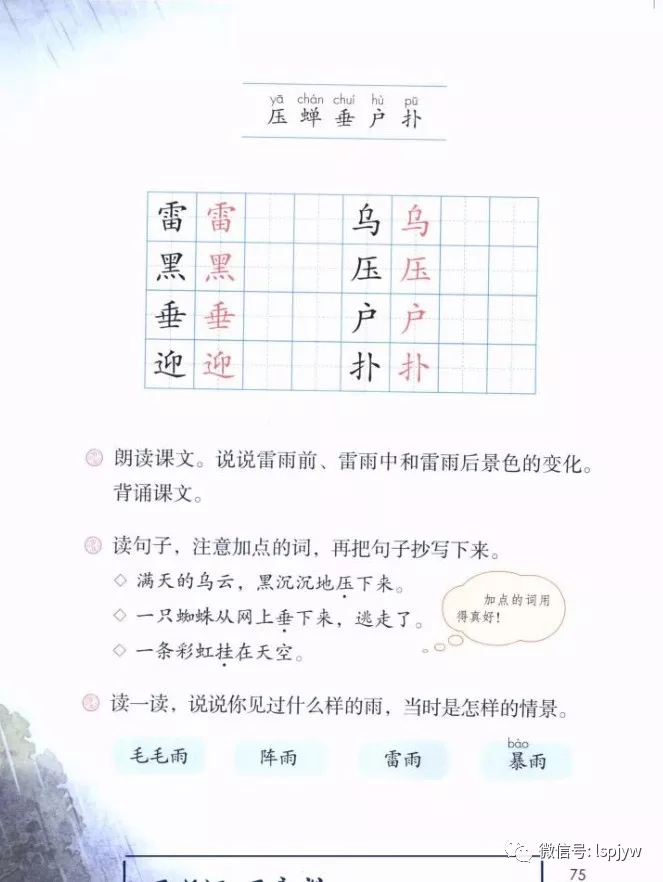 yā chán chuí hù pū
压 蝉 垂 户 扑
雷 雷 乌 乌
黑 黑 压 压
垂 垂 户 户
迎 迎 扑 扑
朗读课文。说说雷雨前、雷雨中和雷雨后景色的变化。
背诵课文。
读句子，注意加点的词，再把句子抄写下来。
◇ 满天的乌云，黑沉沉地压下来。
◇ 一只蜘蛛从网上垂下来，逃走了。
◇ 一条彩虹挂在天空。
加点的词用
得真好！
读一读，说说你见过什么样的雨，当时是怎样的情景。
bào
毛毛雨 阵雨 雷雨 暴雨
微信号: lspjyw
75